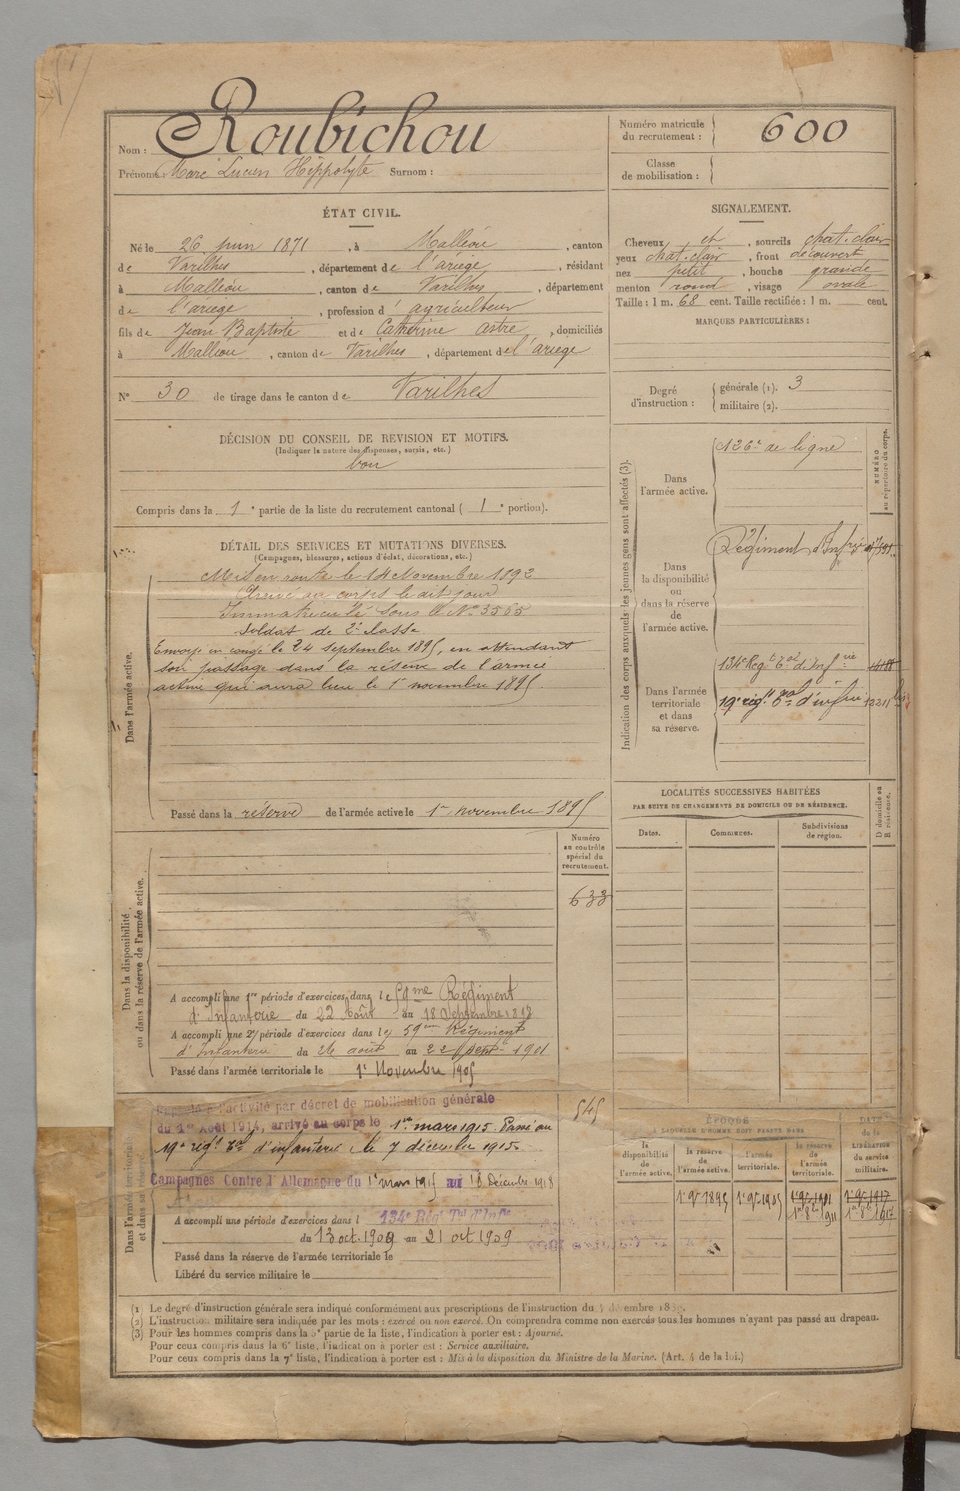 Nom : Roubichou
Prénoms : Marc Lucien Hippolyte Surnom :
Numéro matricule du recrutement : 600
Classe de mobilisation :
ÉTAT CIVIL.
Né le 26 juin 1871, à Malléou, canton
de Varilhes, département de l'ariège, résidant
à Malleou, canton de Varilhes, département
de l'ariège, profession d'agriculteur
fils de Jean Baptiste et de Catherine astre, domiciliés
à Malleou, canton de Varilhes, département de l'ariège
N° 30 de tirage dans le canton de Varilhes
SIGNALEMENT.
Cheveux et, sourcils chat. clair
yeux chat. clair, front découvert
nez petit, bouche grande
menton rond, visage ovale
Taille : 1 m. 68 cent. Taille rectifiée : 1 m. cent.
MARQUES PARTICULIÈRES :
Degré d'instruction : générale (1). 3
militaire (2).
DÉCISION DU CONSEIL DE REVISION ET MOTIFS.
(Indiquer la nature des dispenses, sursis, etc.)
bon
Compris dans la 1e partie de la liste du recrutement cantonal (1e portion).
DÉTAIL DES SERVICES ET MUTATIONS DIVERSES.
(Campagnes, blessures, actions d'éclat, décorations, etc.)
Dans l'armée active.
Mis en route le 14 Novembre 1892
Arrivé au corps le dit jour
Immatriculé sous le No 3565
Soldat de 2e classe
Envoyé en congé le 24 septembre 1895, en attendant
son passage dans la réserve de l'armée
active qui aura lieu le 1er novembre 1895.
Passé dans la réserve de l'armée active le 1er novembre 1895
Indication des corps auxquels les jeunes gens sont affectés (3).
NUMÉRO au répertoire du corps.
Dans l'armée active.
126e de ligne
Dans la disponibilité ou dans la réserve de l'armée active.
Régiment d'Infrie
Dans l'armée territoriale et dans sa réserve.
134e Regt Tal d'Infrie
19e régt Tal d'infrie
LOCALITÉS SUCCESSIVES HABITÉES
PAR SUITE DE CHANGEMENTS DE DOMICILE OU DE RÉSIDENCE.
Dates. Communes. Subdivisions de région. D domicile ou R résidence.
Dans la disponibilité
ou dans la réserve de l'armée active.
Numéro au contrôle spécial du recrutement.
633
A accompli une 1re période d'exercices dans le 59me Régiment
d'Infanterie du 22 Août au 18 Septembre 1898
A accompli une 2e période d'exercices dans le 59em Régiment
d'Infanterie du 26 août au 22 Sept 1901
Passé dans l'armée territoriale le 1er Novembre 1905
Dans l'armée territoriale et dans sa réserve.
545
Rappelé à l'activité par décret de mobilisation générale
du 1er Août 1914, arrivé au corps le 1er mars 1915. Passé au
19e régt Tal d'infanterie, le 7 décembre 1915.
Campagnes Contre l'Allemagne du 1er mars 1915 au 18 Décembre 1918
A accompli une période d'exercices dans l 134e Régt Tal d'Infie
du 13 oct. 1909 au 21 oct 1909
Passé dans la réserve de l'armée territoriale le
Libéré du service militaire le
ÉPOQUE
À LAQUELLE L'HOMME DOIT PASSER DANS
DATE de la LIBÉRATION du service militaire.
la disponibilité de l'armée active. la réserve de l'armée active. l'armée territoriale. la réserve de l'armée territoriale.
1er 9re 1895 1er 9re 1905 1er 9re 1911 1er 9re 1917
1er 8re 1911 1er 8re 1917
(1) Le degré d'instruction générale sera indiqué conformément aux prescriptions de l'instruction du
(2) L'instruction militaire sera indiquée par les mots : exercé ou non exercé. On comprendra comme non exercés tous les hommes n'ayant pas passé au drapeau.
(3) Pour les hommes compris dans la 5e partie de la liste, l'indication à porter est : Ajourné.
Pour ceux compris dans la 6e liste, l'indication à porter est : Service auxiliaire.
Pour ceux compris dans la 7e liste, l'indication à porter est : Mis à la disposition du Ministre de la Marine. (Art. 4 de la loi.)